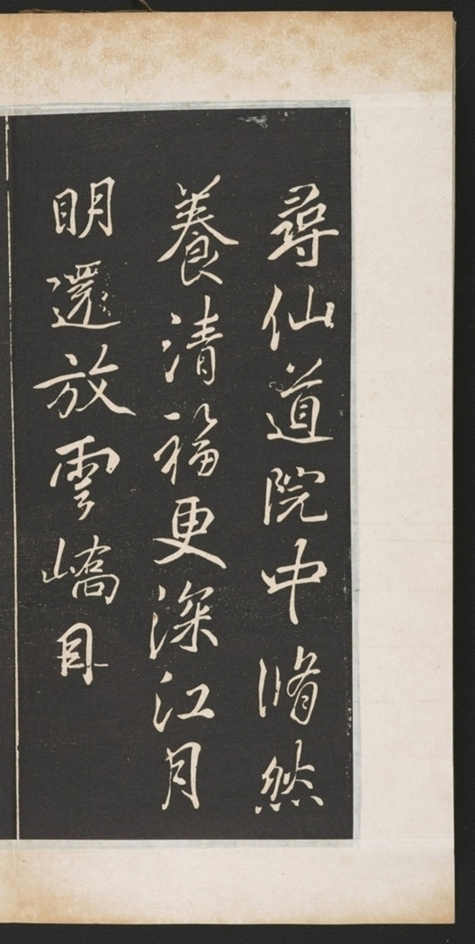 尋仙道院中脩然
養清福更深江月
明還放雲嶠目